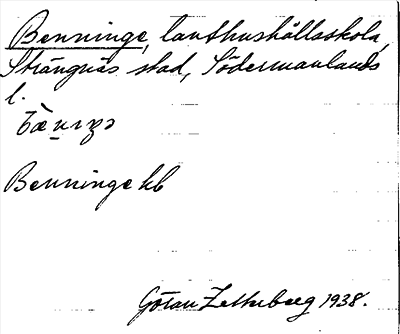 Benninge, lanthushållsskola,
Strängnäs stad, Södermanlands
l.
Benninge hb
Göran Zetterberg 1938.